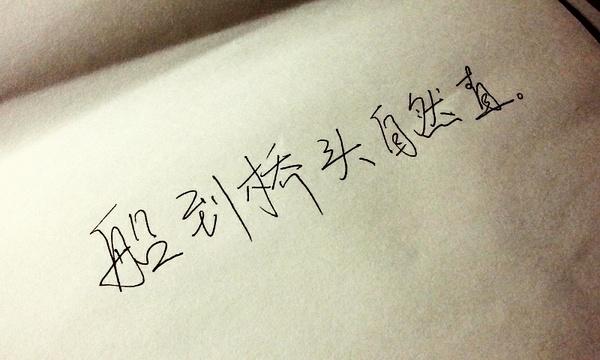 船到桥头自然直。